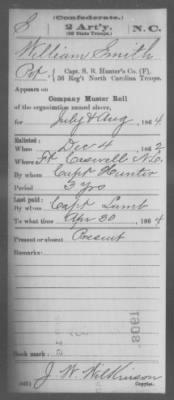 (Confederate.)
S 2 Art'y. N.C.
(36 State Troops.)
William Smith
Pvt, Capt. S. R. Hunter's Co. (F),
36 Reg't North Carolina Troops.
Appears on
Company Muster Roll
of the organization named above,
for July & Aug, 1864
Enlisted:
When Dec 4, 1862
Where Ft Caswell N.C.
By whom Capt Hunter
Period 3 yrs
Last paid:
By whom Capt Lamb
To what time Apr 30, 1864
Present or absent Present
Remarks:
1908
Book mark:
J. W. Wilkinson
Copyist.